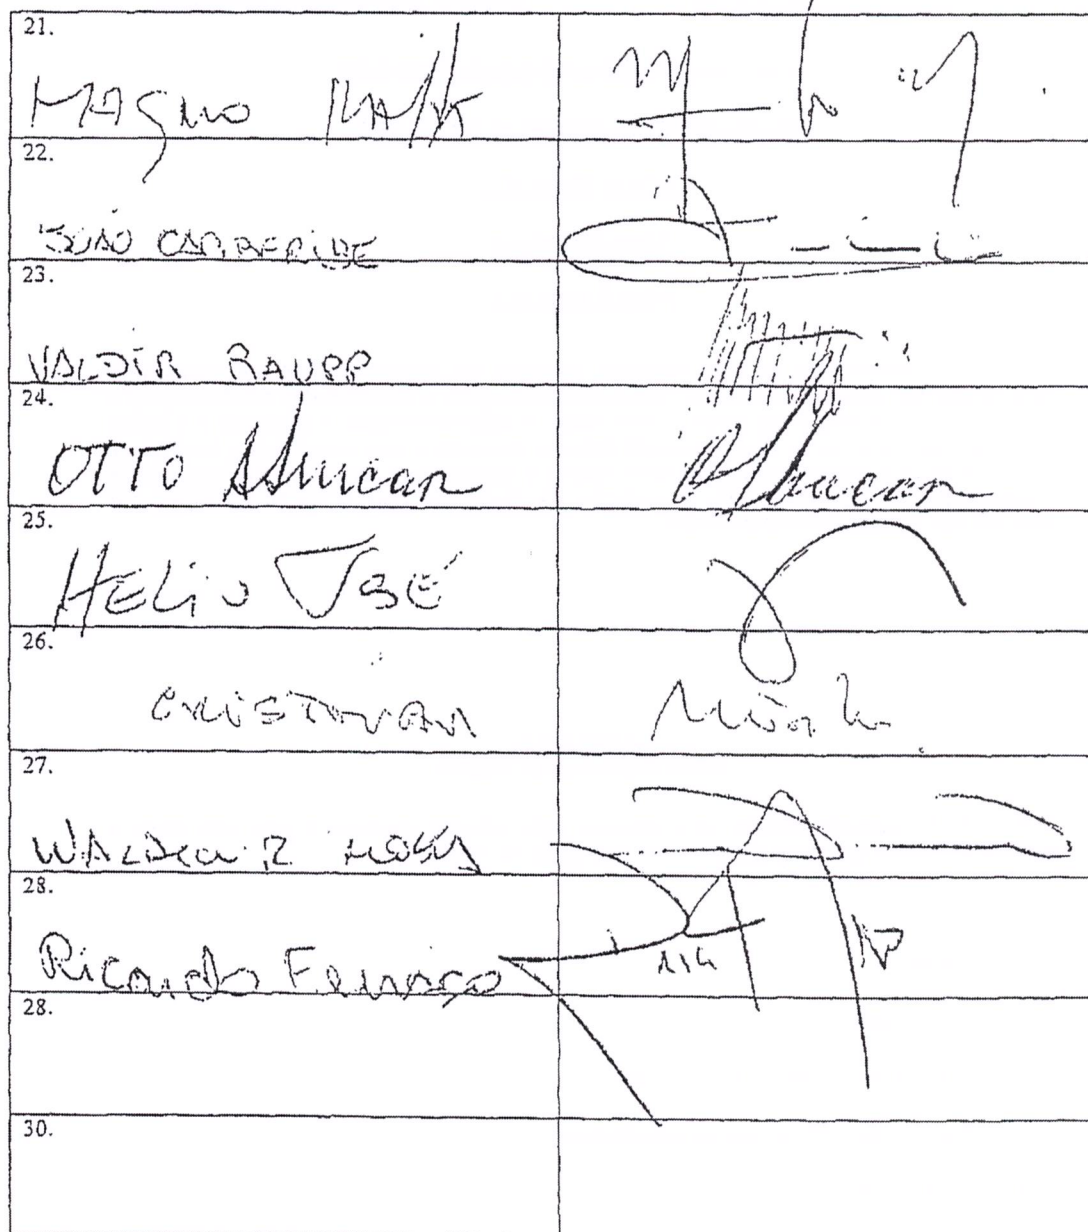 21.
MAGNO MALTA
22.
JOÃO CAPIBERIBE
23.
VALDIR RAUPP
24.
OTTO Alencar Alencar
25.
HELIO JOSÉ
26.
CRISTOVAM
27.
WALDEMIR MOKA
28.
Ricardo Ferraço
28.
30.